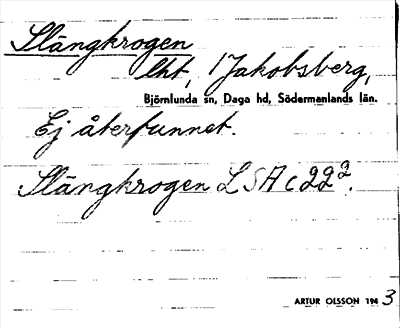 Slängkrogen
lht, / Jakobsberg,
Björnlunda sn, Daga hd, Södermanlands län.
Ej återfunnet.
Slängkrogen LSA C 22².
ARTUR OLSSON 194 3